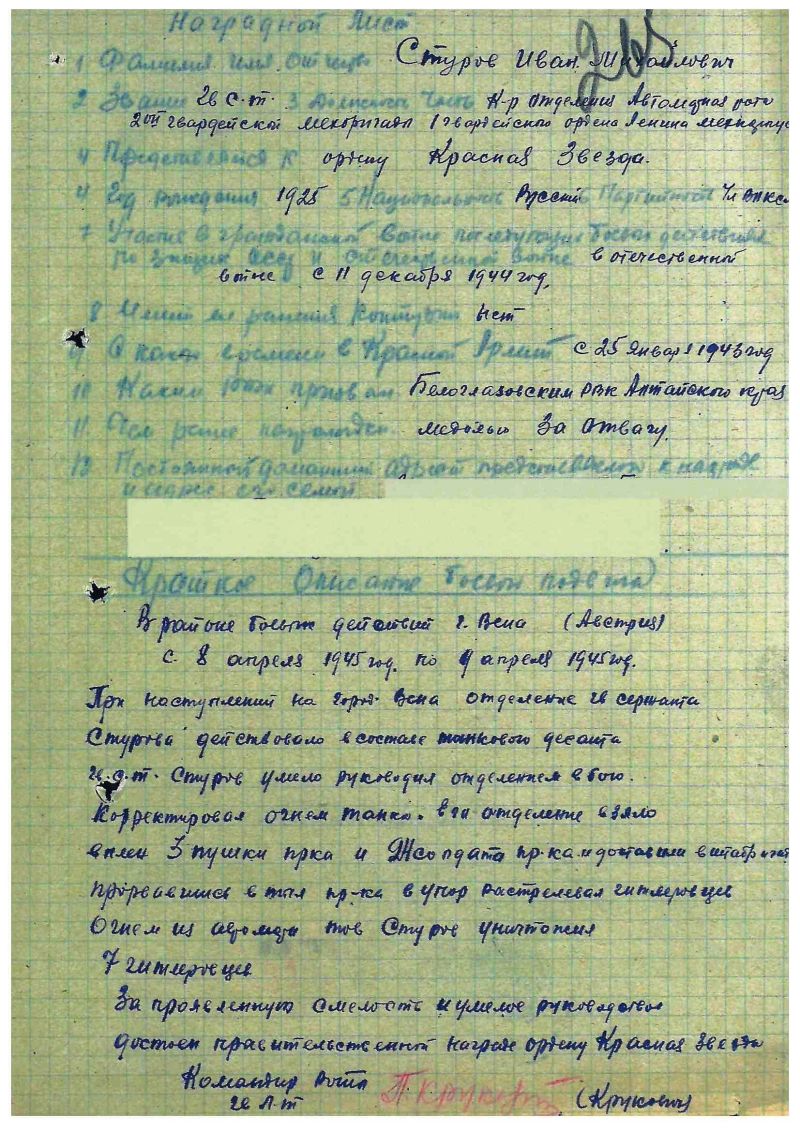 Наградной Лист
265
1 Фамилия. имя. Отчество Стуров Иван Михайлович
2 Звание гв с.т. 3 Должность Часть К-р отделения Автоматная рота
2ой гвардейской мехбригады 1 гвардейского ордена Ленина мехкорпуса
4 Представляется к ордену Красная Звезда.
4 Год рождения 1925 5 Национальность Русский Партийность Чл ВЛКСМ
7 Участие в гражданской войне последующих боевых действиях
по защите СССР и отечественной войне в отечественной
войне с 11 декабря 1944 год.
8 Имеет ли ранения контузии Нет
9 С какого времени в Красной Армии с 25 января 1943 год
10 Каким призван Белоглазовским РВК Алтайского края
11 Чем ранее награжден медалью За Отвагу.
13 Постоянной домашний адрес представляемого к награде
и адрес его семьи
Краткое Описание боевого подвига
В районе боевых действий г. Вена (Австрия)
с 8 апреля 1945 год. по 9 апреля 1945 год.
При наступлений на город. Вена отделение гв сержанта
Стурова действовало в составе танкового десанта
гв.с.т. Стуров умело руководил отделением в бою.
Корректировал огнем танка. его отделение взяло
в плен 3 пушки пр-ка и солдата пр-ка и доставили в штабригад
прорвавшись в тыл пр-ка в упор растрелевал гитлеровцев
Огнем из автомата тов Стуров уничтожил
7 гитлеровцев
За проявленную смелость и умелое руководство
достоен правительственной награде ордену Красная Звезда
Командир Роты
гв Л-т (Крукович)